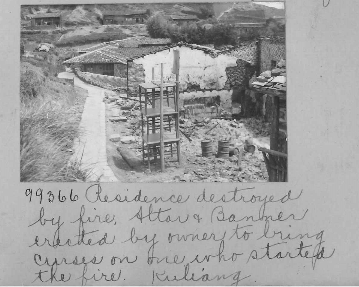 99366 Residence destroyed
by fire. Altar & Banner
erected by owner to bring
curses on one who started
the fire. Kuliang